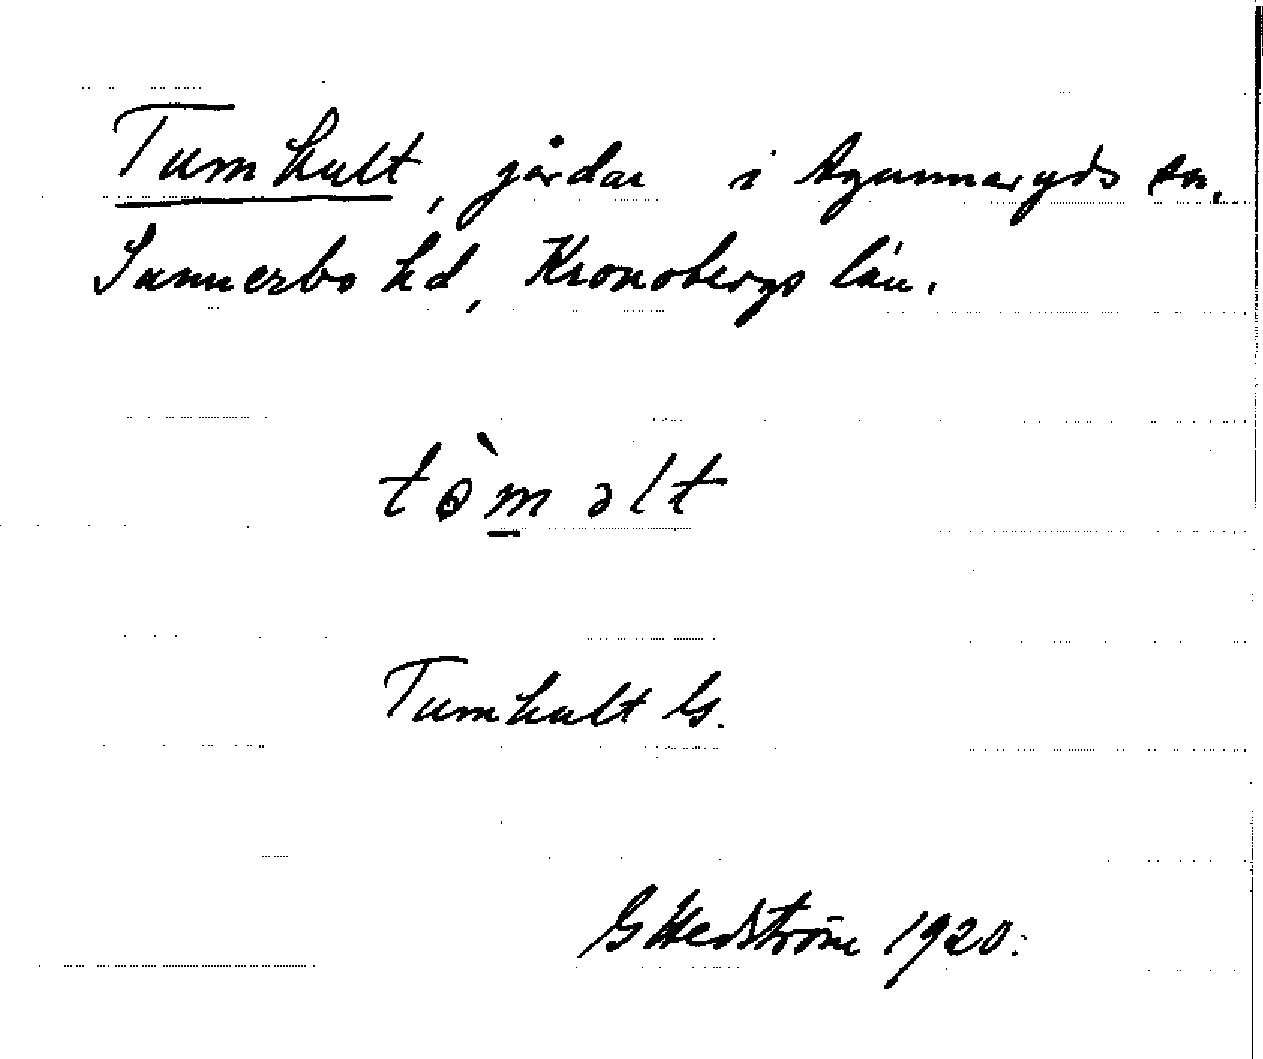 Tumhult, gårdar i Agunnaryds sn,
Sunnerbo hd, Kronobergs län.
tòməlt
Tumhult GS.
G Hedström 1920.